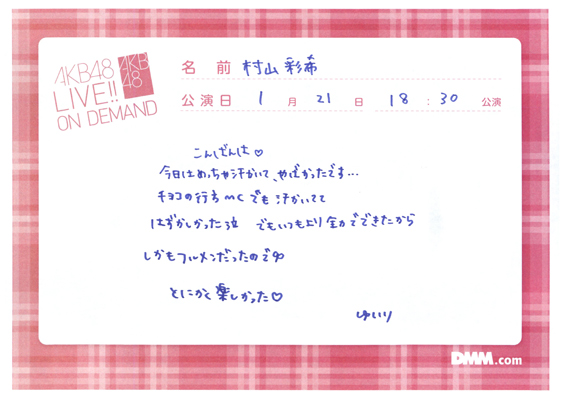 AKB48
LIVE!!
ON DEMAND
AKB
48
名前 村山彩希
公演日 1月21日 18:30 公演
こんばんは♡
今日はめっちゃ汗かいて、やばかったです…
チョコの行方MCでも汗かいてて
はずかしかった泣 でもいつもより全力でできたから
しかもフルメンだったので
とにかく楽しかった♡
ゆいり
DMM.com